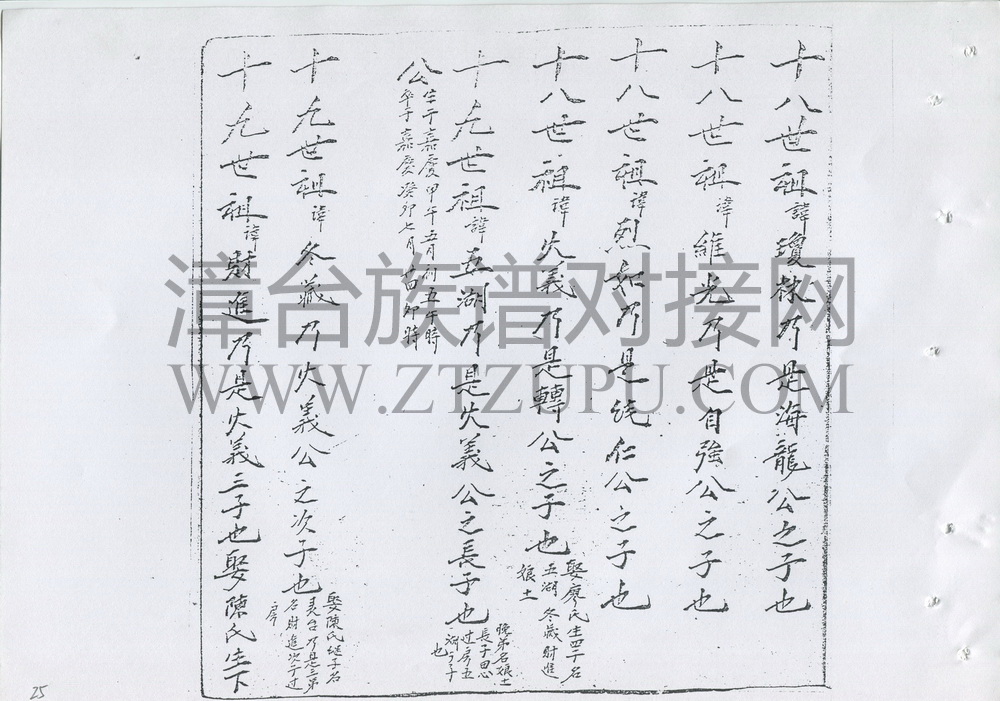 十八世祖諱瓊林乃是海龍公之子也
十八世祖諱維光乃是自強公之子也
十八世祖諱烈如乃是統仁公之子也
十八世祖諱火義乃是轉公之子也
娶廖氏生四子名
五湖 冬藏 財進
娘土
十九世祖諱五湖乃是火義公之長子也
晚弟名娘土
長子田心
过房五
湖之子
也
公
生于嘉慶甲午五月初五午時
卒于嘉慶癸卯七月十四卯時
十九世祖諱冬藏乃火義公之次子也
娶陳氏继子名
乃是三弟
名財進次子过
房
十九世祖諱財進乃是火義三子也娶陳氏生下
漳台族谱对接网
WWW.ZTZUPU.COM
25